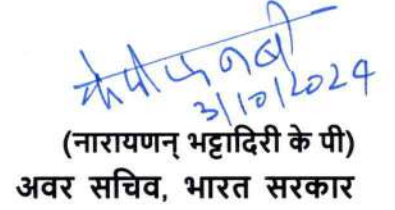 3/10/2024
(नारायणन् भट्टादिरी के पी)
अवर सचिव, भारत सरकार